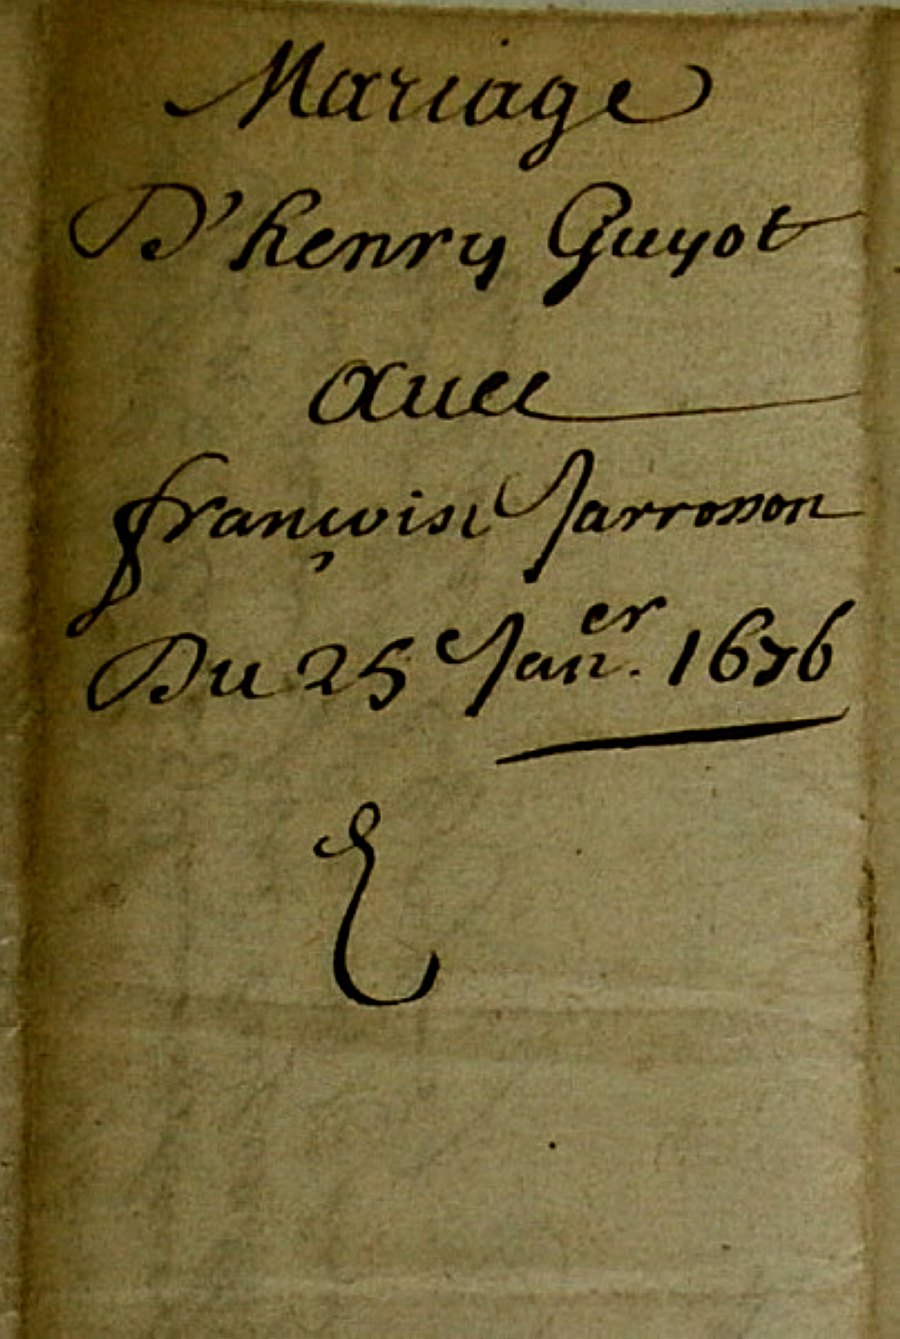 Mariage
D'henry Guyot
auec
françoise Jarrosson
Du 25 Jan.er 1676
E